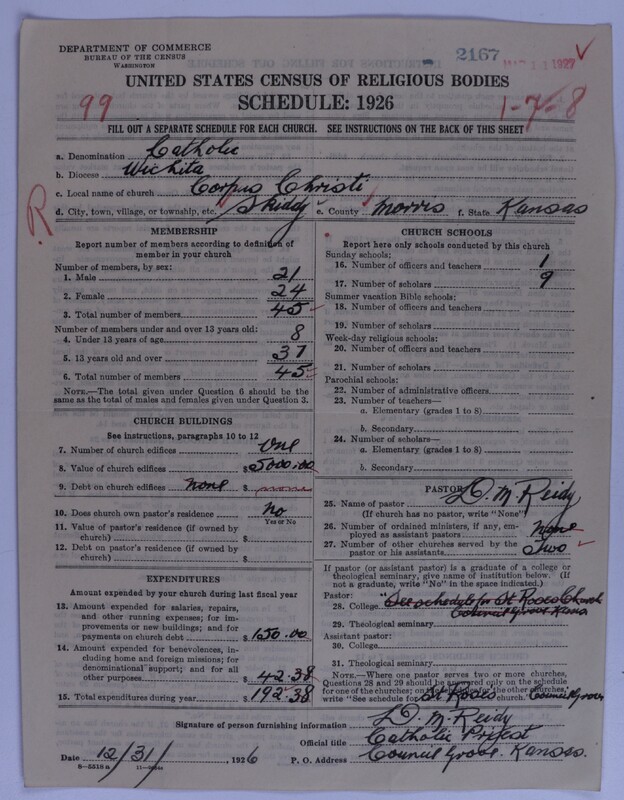 DEPARTMENT OF COMMERCE
BUREAU OF THE CENSUS
WASHINGTON
2167
1927
UNITED STATES CENSUS OF RELIGIOUS BODIES
SCHEDULE: 1926
99
1-7-8
FILL OUT A SEPARATE SCHEDULE FOR EACH CHURCH. SEE INSTRUCTIONS ON THE BACK OF THIS SHEET
a. Denomination Catholic
b. Diocese Wichita
c. Local name of church Corpus Christi
R
d. City, town, village, or township, etc. Skiddy e. County Morris f. State Kansas
MEMBERSHIP
Report number of members according to definition of
member in your church
Number of members, by sex:
1. Male 21
2. Female 24
3. Total number of members 45
Number of members under and over 13 years old:
4. Under 13 years of age 8
5. 13 years old and over 37
6. Total number of members 45
NOTE.—The total given under Question 6 should be
same as the total of males and females given under Question 3.
CHURCH BUILDINGS
See instructions, paragraphs 10 to 12
7. Number of church edifices One
8. Value of church edifices $5000.00
9. Debt on church edifices None $ none
10. Does church own pastor's residence? No
Yes or No
11. Value of pastor's residence (if owned by
church) $
12. Debt on pastor's residence (if owned by
church) $
EXPENDITURES
Amount expended by church during last fiscal year
13. Amount expended for salaries, repairs,
and other running expenses; for im-
provements or new buildings; and for
payments on church debt $150.00
14. Amount expended for benevolences, in-
cluding home and foreign missions; for
denominational support; and for all
other purposes $42.38
15. Total expenditures during year $192.38
CHURCH SCHOOLS
Report here only schools conducted by this church
Sunday schools:
16. Number of officers and teachers 1
17. Number of scholars 9
Summer vacation Bible schools:
18. Number of officers and teachers
19. Number of scholars
Week-day religious schools:
20. Number of officers and teachers
21. Number of scholars
Parochial schools:
22. Number of administrative officers
23. Number of teachers—
a. Elementary (grades 1 to 8)
b. Secondary
24. Number of scholars—
a. Elementary (grades 1 to 8)
b. Secondary
PASTOR
25. Name of pastor D. M. Reidy
(If church has no pastor, write "None")
26. Number of ordained ministers, if any, em-
ployed as assistant pastors None
27. Number of other churches served by the
pastor or his assistants Two
If pastor (or assistant pastor) is a graduate of a college or
theological seminary, give name of institution below. (If
not a graduate, write "No" in the space indicated.)
Pastor:
28. College "See schedule for St Roses Church
Council Grove Kans
29. Theological seminary
Assistant pastor:
30. College
31. Theological seminary
NOTE.—Where one pastor serves two or more churches,
Questions 28 and 29 should be answered only on the schedule
for one of the churches; on the schedules for the other churches,
write "See schedule for St Roses church. Council Grove
Signature of person furnishing information D. M. Reidy
Official title Catholic Priest
Date 12/31/, 1926 P. O. Address Council Grove. Kansas.
8—5518 a